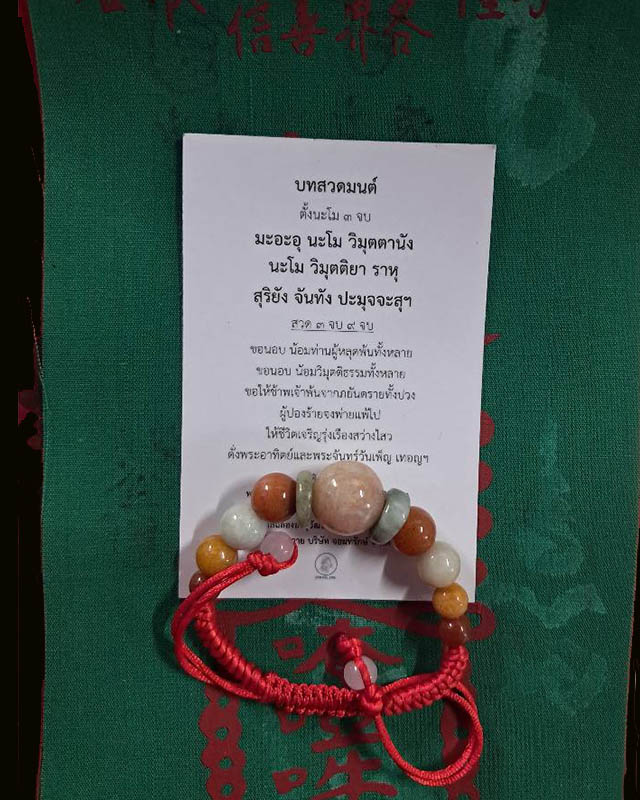 信善界各
บทสวดมนต์
ตั้งนะโม ๓ จบ
มะอะอุ นะโม วิมุตตานัง
นะโม วิมุตติยา ราหุ
สุริยัง จันทัง ปะมุจจะสุฯ
สวด ๓ จบ ๙ จบ
ขอนอบ น้อมท่านผู้หลุดพ้นทั้งหลาย
ขอนอบ น้อมวิมุตติธรรมทั้งหลาย
ขอให้ข้าพเจ้าพ้นจากภยันตรายทั้งปวง
ผู้ปองร้ายจงพ่ายแพ้ไป
ให้ชีวิตเจริญรุ่งเรืองสว่างไสว
ดั่งพระอาทิตย์และพระจันทร์วันเพ็ญ เทอญฯ
บริษัท จอมทรักษ์